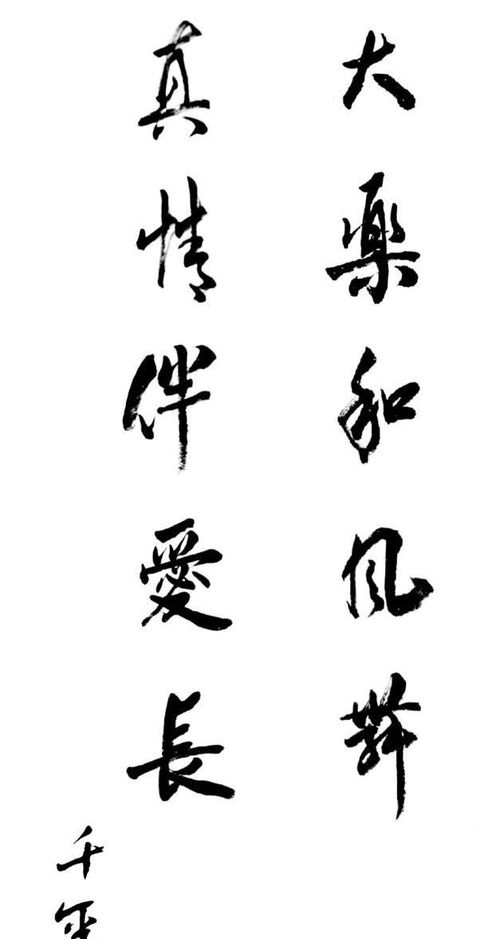 大樂和風舞
真情伴愛長
千